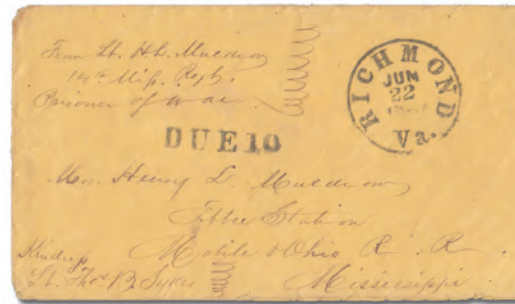 From Lt. H. L. Muldrow
14th Miss. Regt.
Prisoner of War
RICHMOND
JUN
22
Va.
DUE 10
Mrs. Henry L. Muldrow
Tibbee Station
Mobile & Ohio R. R.
Mississippi
Kindness
Lt. Thos B. Sykes